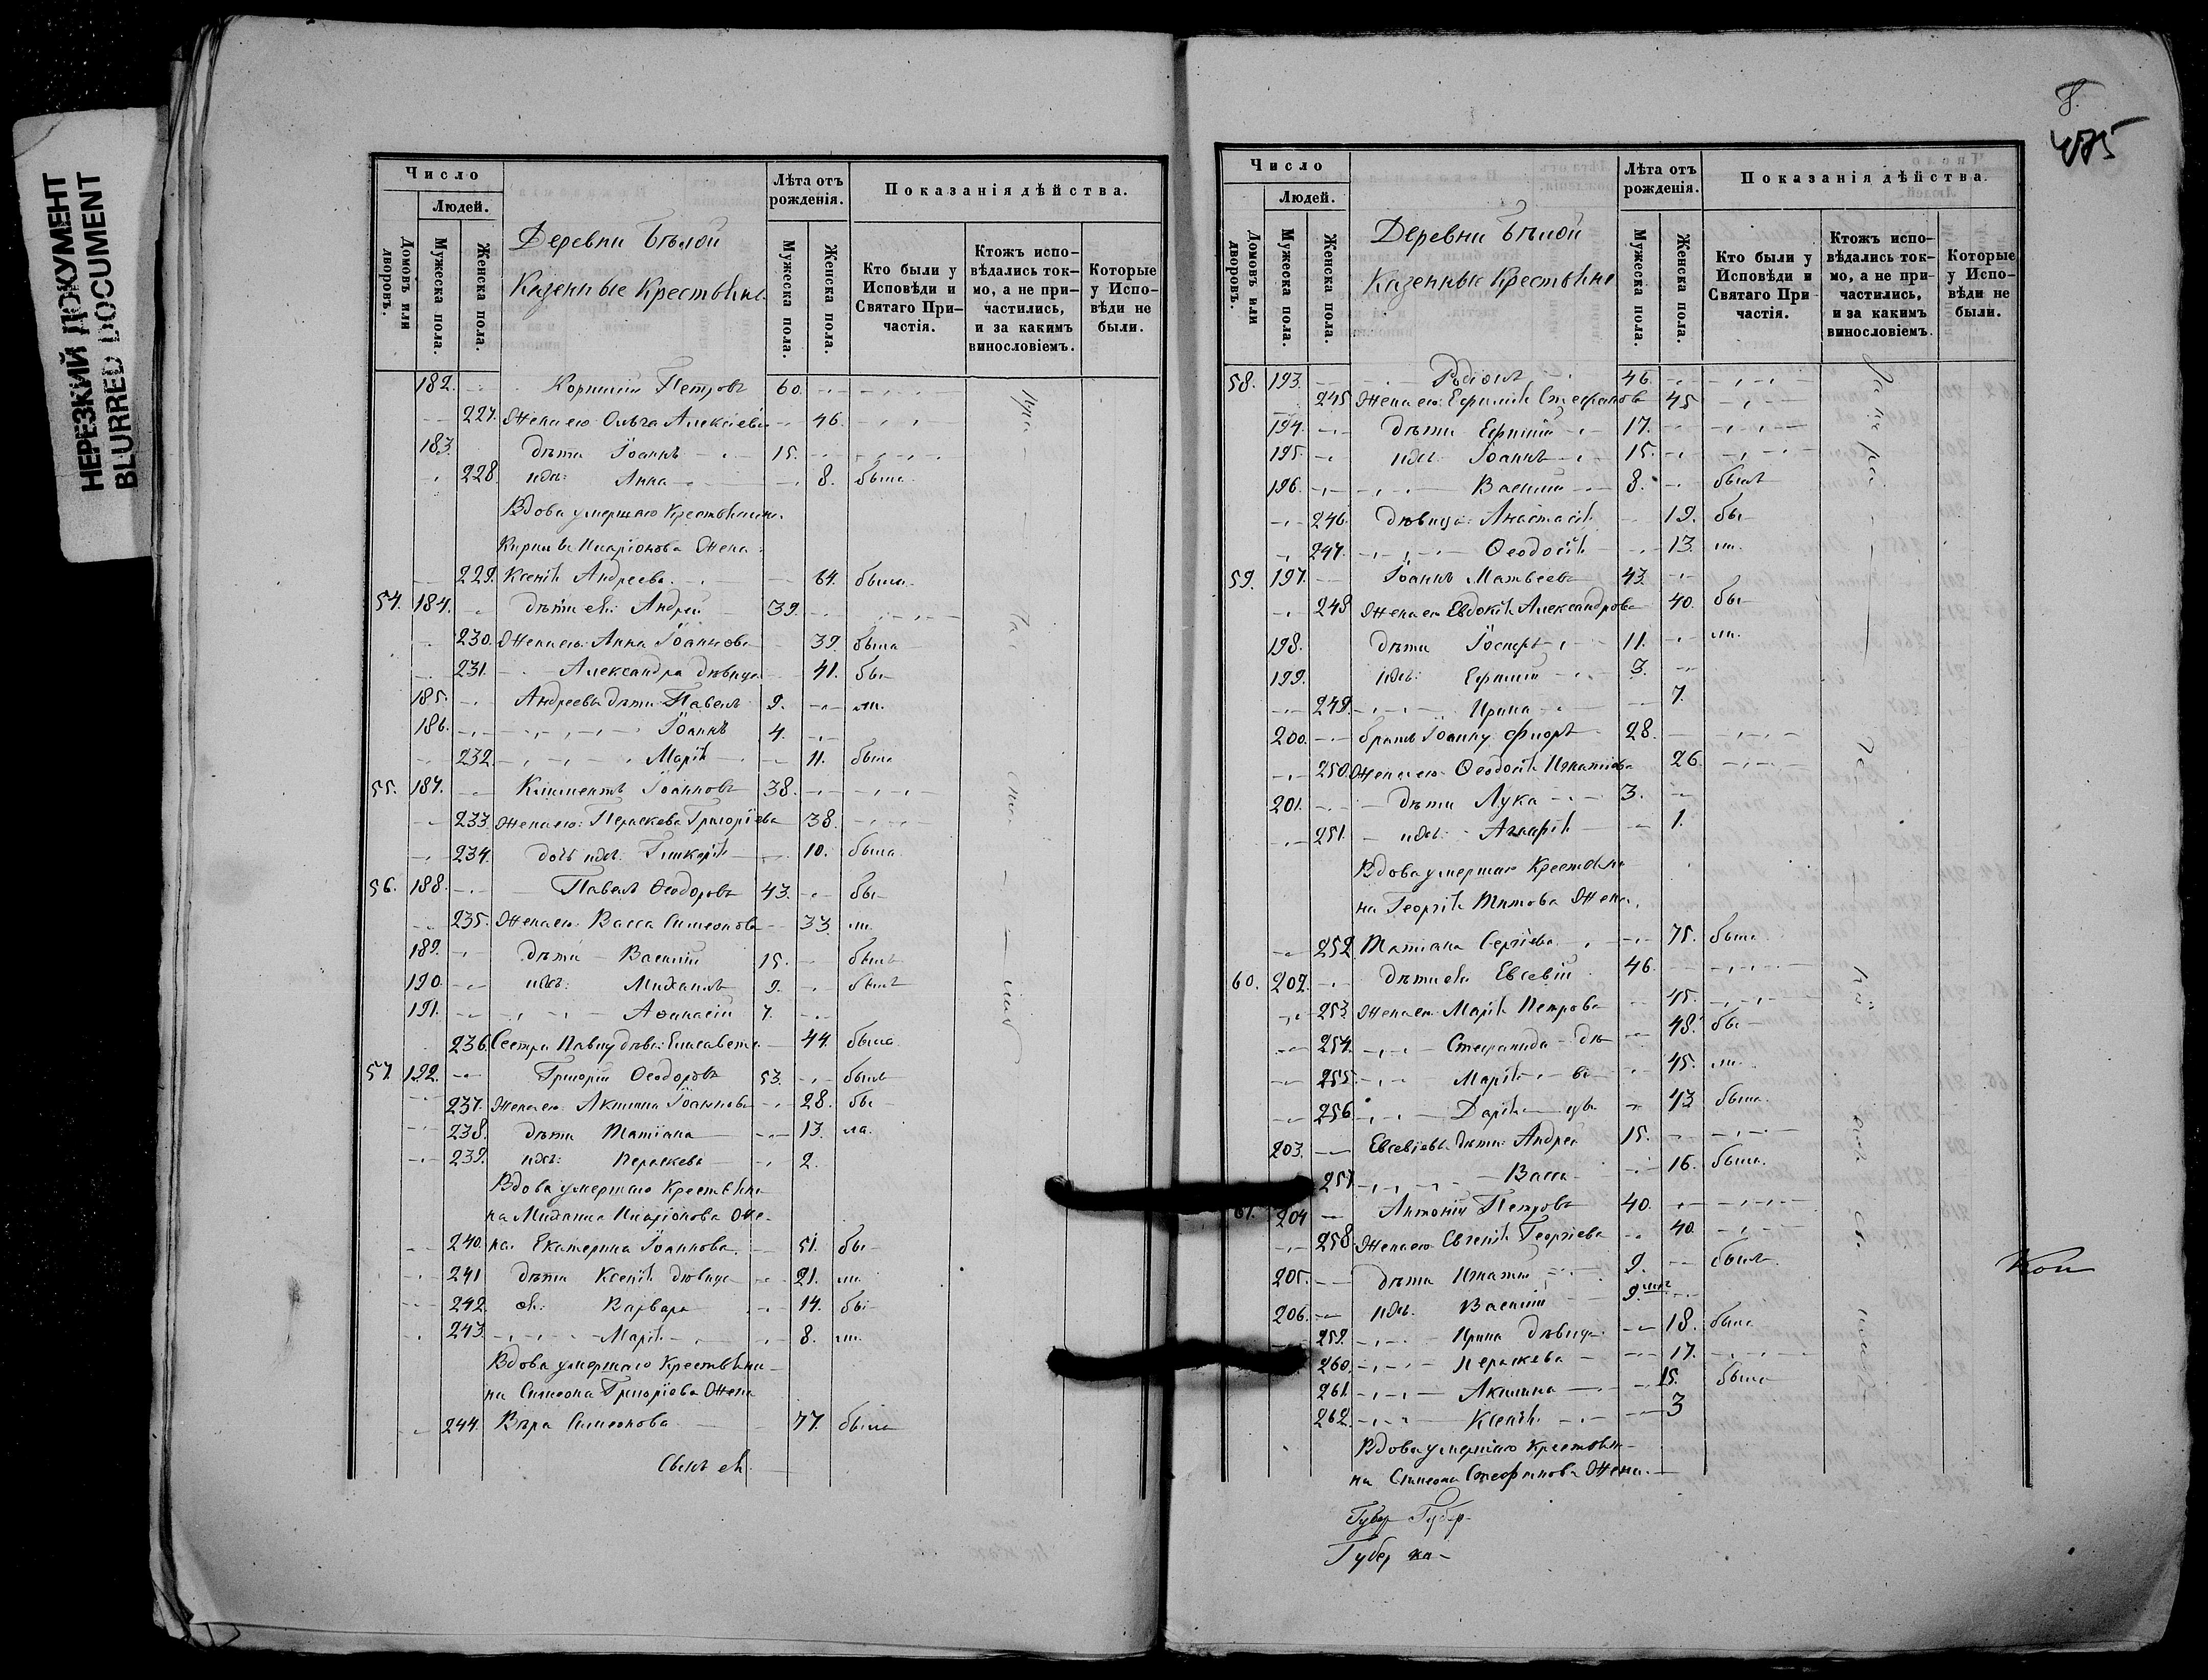 НЕРЕЗКИЙ ДОКУМЕНТ
BLURRED DOCUMENT
Число
Людей.
Домовъ или дворовъ.
Мужеска пола.
Женска пола.
Деревни Бѣлой
Казенные Крестьяне
Лѣта отъ рожденія.
Мужеска пола.
Женска пола.
Показанія дѣйства.
Кто были у Исповѣди и Святаго Причастія.
Ктожъ исповѣдались токмо, а не причастились, и за какимъ винословіемъ.
Которые у Исповѣди не были.
182. Корнилій Петровъ 60.
227. Жена его Ольга Алексіева 46.
183. дѣти Іоаннъ 15.
228. ихъ: Анна 8. была
Вдова умершаго Крестьянина
Кирила Иларіонова Жена
229. Ксенія Андреева 64. была
54. 184. дѣти ея: Андрей 39.
230. Жена его Анна Іоаннова 39. была
231. Александра дѣвица 41. бы-
185. Андреевы дѣти Павелъ 9. ли.
186. Іоаннъ 4.
232. Марія 11. была
55. 187. Климентъ Іоанновъ 38.
233. Жена его: Параскева Григоріева 38.
234. дочь ихъ Гликерія 10. была
56. 188. Павелъ Ѳеодоровъ 43. бы-
235. Жена его Васса Симеонова 33. ли.
189. дѣти Василій 15. былъ
190. ихъ: Михаилъ 9. былъ
191. Аѳанасій 7.
236. Сестра Павлу дѣва: Елисавета 44. была
57. 192. Григорій Ѳеодоровъ 53. былъ
237. Жена его Акилина Іоаннова 28. бы-
238. дѣти Татіана 13. ла.
239. ихъ: Параскева 2.
Вдова умершаго Крестьяни-
на Михаила Иларіонова Же-
240. на Екатерина Іоаннова 51. бы-
241 дѣти Ксенія дѣвица 21. ли.
242. ея: Варвара 14. бы-
243. Марія 8. ли.
Вдова умершаго Крестьяни-
на Симеона Григоріева Жена
244. Вѣра Симеонова 77. была
8.
Число
Людей.
Домовъ или дворовъ.
Мужеска пола.
Женска пола.
Деревни Бѣлой
Казенные Крестьяне
Лѣта отъ рожденія.
Мужеска пола.
Женска пола.
Показанія дѣйства.
Кто были у Исповѣди и Святаго Причастія.
Ктожъ исповѣдались токмо, а не причастились, и за какимъ винословіемъ.
Которые у Исповѣди не были.
58. 193. 46.
245 Жена его: Стефанова 45
194. Дѣти 17.
195. ихъ: Іоаннъ 15.
196. Василій 8. былъ
246. Дѣвица: Анастасія 19. бы-
247. Ѳеодосія 13. ли.
59. 197. Іоаннъ Матвеевъ 43.
248 Жена его Евдокія Александрова 40. бы-
198. Дѣти Іосифъ 11. ли.
199. ихъ: 3.
249. Ирина 7.
200. братъ Іоанну 28.
250. Жена его Ѳеодосія Игнатіева 26.
201. дѣти Лука 3.
251. ихъ: 1.
Вдова умершаго Крестьяни-
на Георгія Титова Жена
252. Татіана Сергіева 75. была
60. 202. Дѣти ея Евсевій 46.
253. Жена его Марія Петрова 45.
254. Стефанида дѣ- 48. бы-
255. Марія 45. ли.
256 Дарія 43 была
203. Евсевіевы дѣти: Андрей 15.
257. Васса 16. была.
61. 204 Антоній Петровъ 40.
258. Жена его Евгенія Георгіева 40.
205. дѣти Игнатій 9. былъ
206. ихъ. Василій 9.
259. Ирина дѣвица 18. была
260. Параскева 17.
261. Акилина 15. была
262. Ксенія 3
Вдова умершаго Крестьяни-
на Симеона Стефанова Жена
Губер Губер-
Губер на-